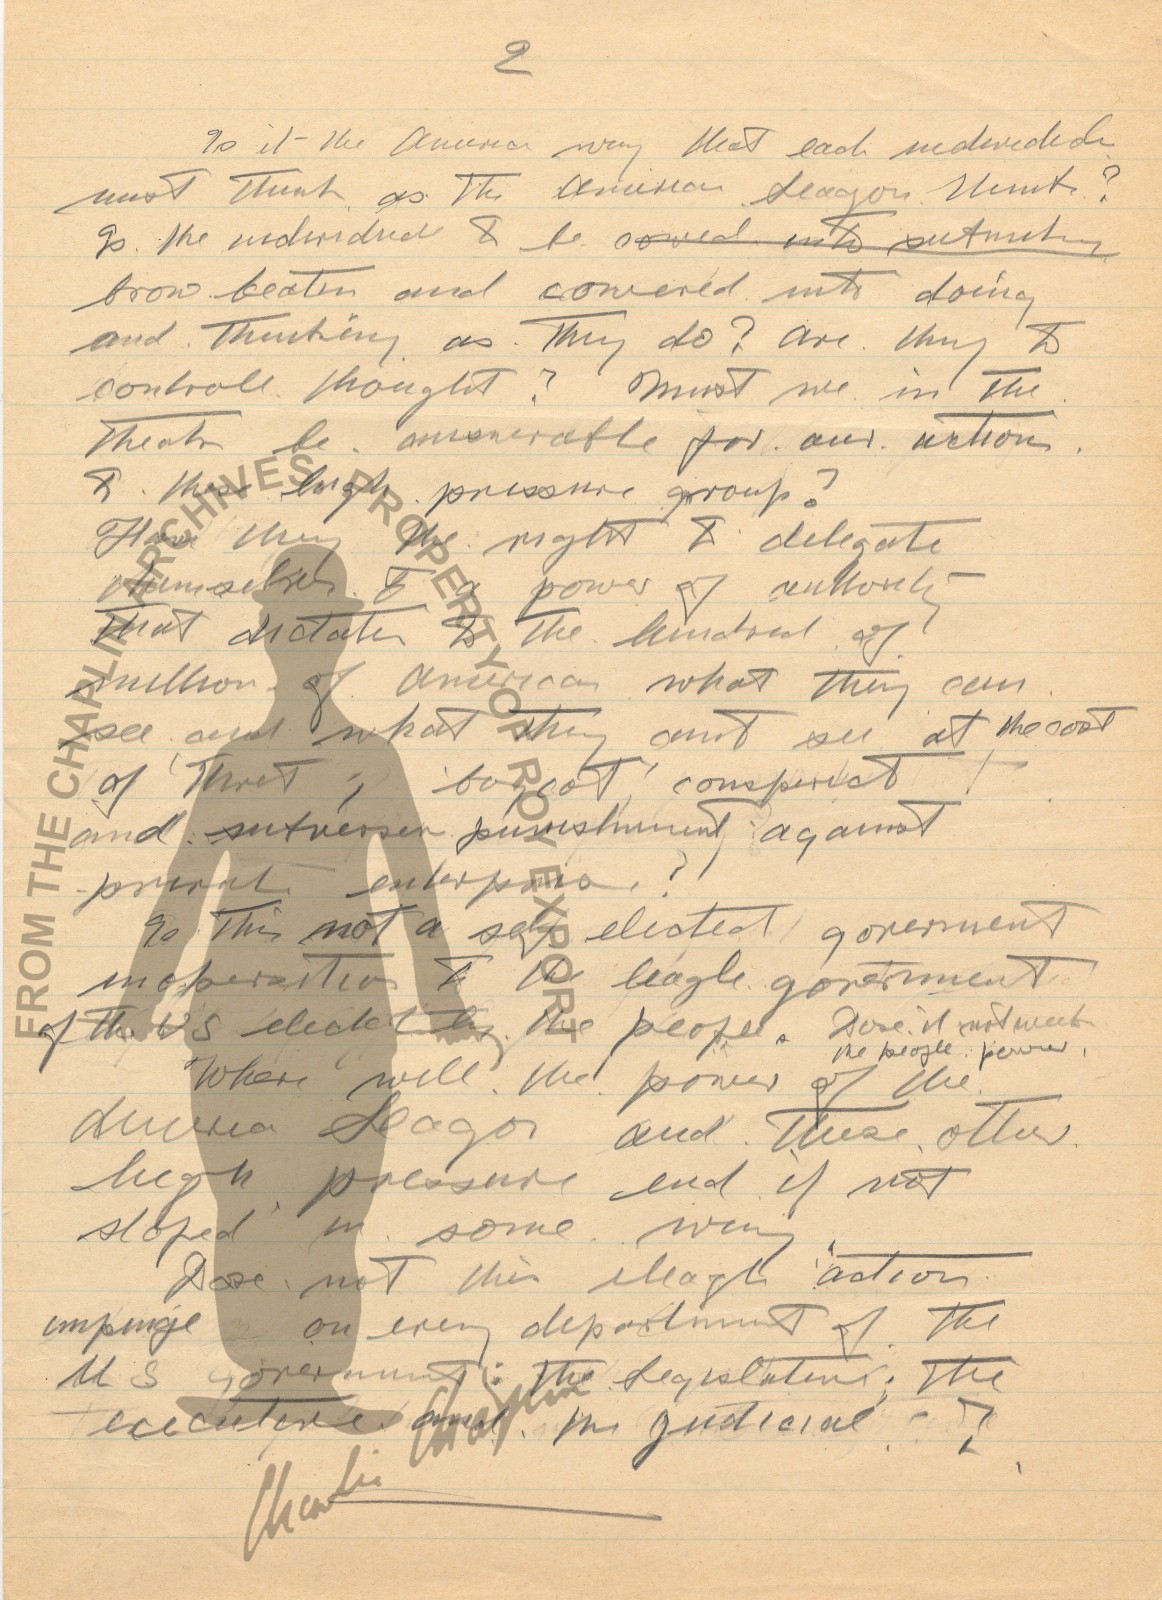 2
Is it the America way that each individule
must think as the American Leagon thinks?
Is the individule to be cowed into
brow beaten and cowered into doing
and thinking as they do? are they to
controle thought? Must we in the
theatre be answerable for our actions
to these high pressure group?
Have they the right to delegate
themselves to a power of authority
that dictates to the hundred of
million of American what they can
see and what they cant see at the cost
of 'thret', 'boycot', conspirict
and punishment against
private enterprise?
Is this not a self elected goverment
to the leagle government
of the US elected by the people. Dose it not
the people power.
Where will the power of the
America Leagon and these other
high pressure end if not
stoped in some way
Dose not this illeagle action
impinge on every department of the
U S government: the Legislative, the
executive and the judicial ?
Charlie Chaplin
FROM THE CHAPLIN ARCHIVES. PROPERTY OF ROY EXPORT